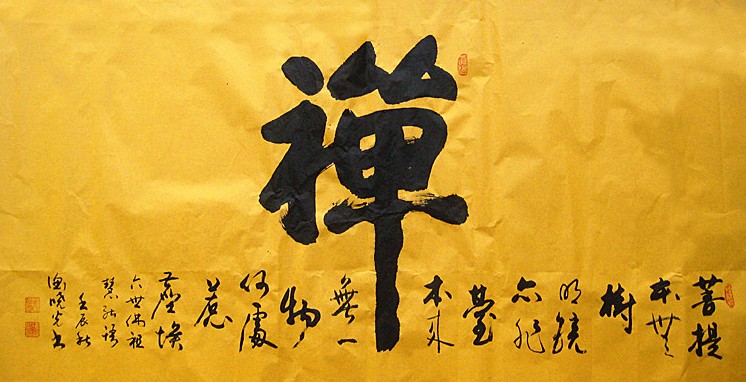 禪
菩提
本無
樹
明鏡
亦非
臺
本來
無一
物
何處
惹
塵埃
六世佛祖
慧能語
壬辰秋
曉光書